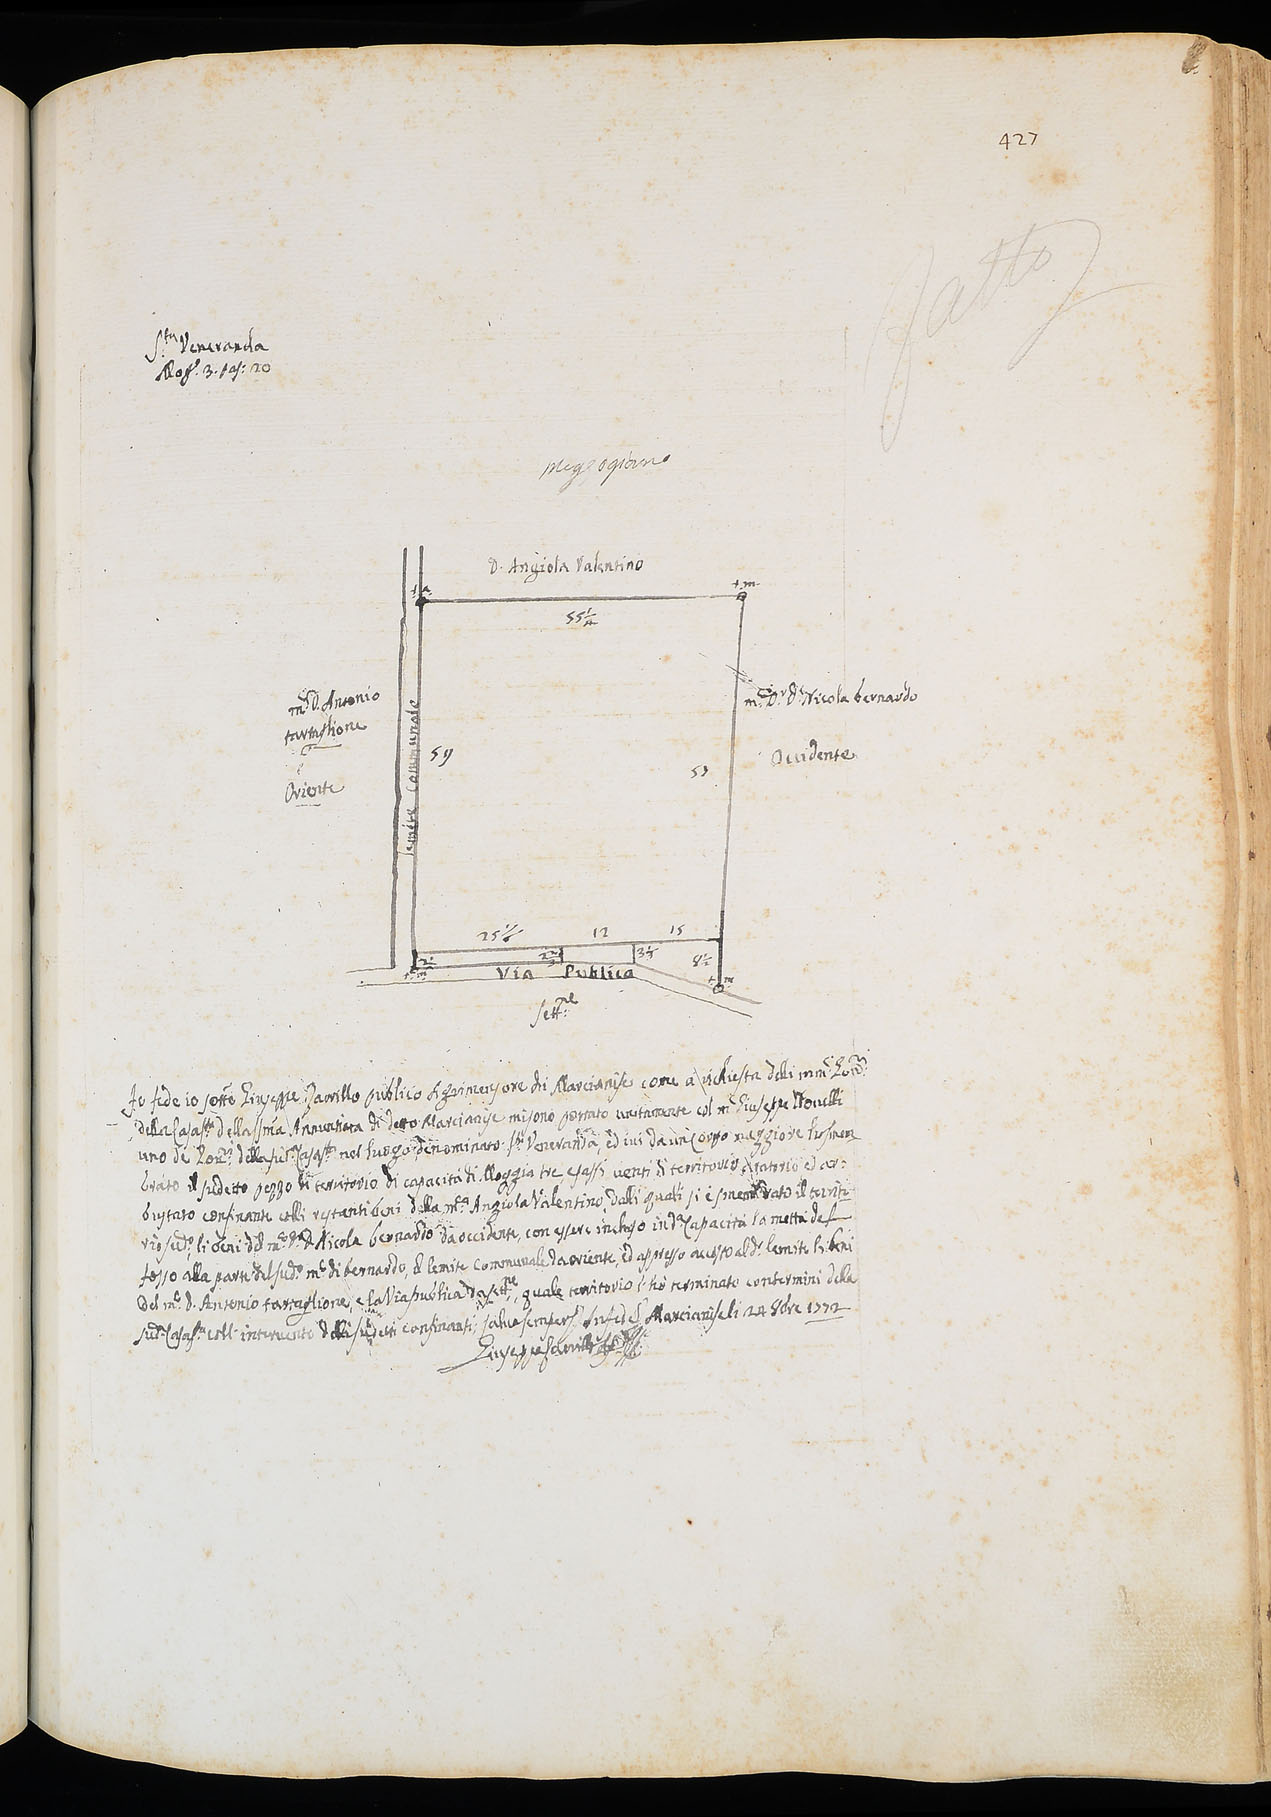 427
Fatto
S.ta Veneranda
Mog.a 3. pas: 20
Mezzogiorno
D. Angiola Valentino
55 1/4
m.co D. Antonio
tartaglione
e
Oriente
lemite Communale
59
59
m.co D.r D. Nicola bernardo
Occidente
25 1/6 12 15
2 1/2 3 1/3 8 1/2
Via Publica
Sett.ne
Fo fede io sotto Giuseppe Zarrillo publico agrimensore di Marcianise come a richiesta delli mm.ci
della Casas.ta della SSma Annunciata di detto Marcianise mi sono portato unitamente col m.co Giuseppe Novelli
uno de della sud.a Casas.ta nel luogo denominato S.ta Veneranda, ed ivi da un Corpo maggiore hò smem
brato il sudetto pezzo di territorio di capacità di Moggia tre e passi venti di territorio aratorio ed ar-
bustato confinante colli restanti beni della m.ca Angiola Valentino, dalli quali si è smembrato il territo
rio sud.o, li beni del m.co D.r D. Nicola bernardo da occidente, con essere incluso in d.a capacità la metà del
fosso alla parte del sud.o m.co di bernardo, il lemite communale da oriente, ed appresso accosto al d.o lemite li beni
del m.co D. Antonio tartaglione, e la Via publica da sett.ne, quale territorio l'hò terminato con termini della
sud.a Casas.ta coll' intervento delli sudetti confinanti, salvo semper In fede Marcianise li 24 8bre 1772
Giuseppe Zarrillo